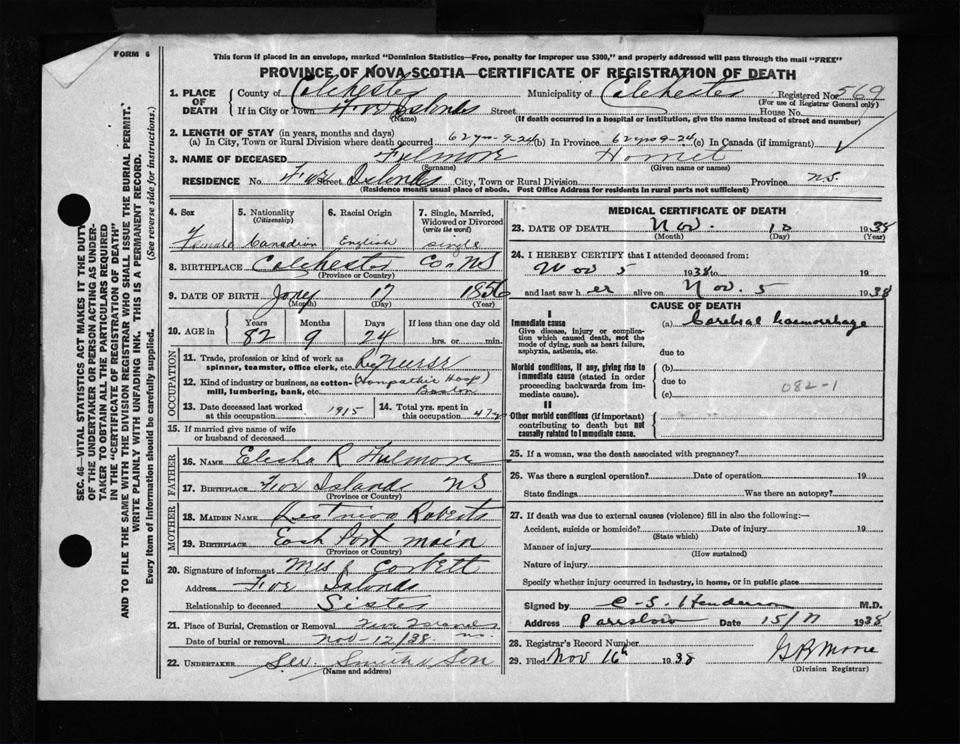 FORM 6
This form if placed in an envelope, marked "Dominion Statistics—Free, penalty for improper use $300," and properly addressed will pass through the mail "FREE"
PROVINCE OF NOVA SCOTIA—CERTIFICATE OF REGISTRATION OF DEATH
1. PLACE OF DEATH
County of Colchester Municipality of Colchester Registered No. 569
(For use of Registrar General only)
If in City or Town Street House No.
(Name) (If death occurred in a hospital or institution, give the name instead of street and number)
2. LENGTH OF STAY (in years, months and days)
(a) In City, Town or Rural Division where death occurred (b) In Province (c) In Canada (if immigrant)
3. NAME OF DECEASED Fulmore
(Surname) (Given name or names)
RESIDENCE No. Street Islands City, Town or Rural Division Province N.S.
(Residence means usual place of abode. Post Office Address for residents in rural parts not sufficient)
4. Sex 5. Nationality 6. Racial Origin 7. Single, Married, Widowed or Divorced
(Citizenship) (write the word)
Female Canadian English Single
8. BIRTHPLACE Colchester Co. NS
(Province or Country)
9. DATE OF BIRTH 17 1856
(Month) (Day) (Year)
10. AGE in Years Months Days If less than one day old
82 9 24 hrs. or min.
OCCUPATION
11. Trade, profession or kind of work as spinner, teamster, office clerk, etc. Nurse
12. Kind of industry or business, as cotton-mill, lumbering, bank, etc. Boston
13. Date deceased last worked at this occupation 1915 14. Total yrs. spent in this occupation
15. If married give name of wife or husband of deceased
FATHER
16. NAME Elisha R Fulmore
17. BIRTHPLACE Islands NS
(Province or Country)
MOTHER
18. MAIDEN NAME Roberts
19. BIRTHPLACE East Port Main
(Province or Country)
20. Signature of informant Mrs Corbett
Address Islands
Relationship to deceased Sister
21. Place of Burial, Cremation or Removal
Date of burial or removal Nov-12/38
22. UNDERTAKER Son
(Name and address)
MEDICAL CERTIFICATE OF DEATH
23. DATE OF DEATH Nov. 10 1938
(Month) (Day) (Year)
24. I HEREBY CERTIFY that I attended deceased from:
Nov 5 1938 to 19
and last saw her alive on Nov. 5 1938
CAUSE OF DEATH
I
Immediate cause
Give disease, injury or complication which caused death, not the mode of dying, such as heart failure, asphyxia, asthenia, etc.
(a) Cerebral haemorrhage
due to
Morbid conditions, if any, giving rise to immediate cause (stated in order proceeding backwards from immediate cause)
(b)
due to
(c) 082-1
II
Other morbid conditions (if important) contributing to death but not causally related to immediate cause.
25. If a woman, was the death associated with pregnancy?
26. Was there a surgical operation? Date of operation 19
State findings Was there an autopsy?
27. If death was due to external causes (violence) fill in also the following:—
Accident, suicide or homicide? Date of injury 19
(State which)
Manner of injury
(How sustained)
Nature of injury
Specify whether injury occurred in industry, in home, or in public place
Signed by C-S. Henderson M.D.
Address Date 15/11 1938
28. Registrar's Record Number
29. Filed Nov 16th 1938
(Division Registrar)
SEC. 46—VITAL STATISTICS ACT MAKES IT THE DUTY OF THE UNDERTAKER OR PERSON ACTING AS UNDERTAKER TO OBTAIN ALL THE PARTICULARS REQUIRED IN THE "CERTIFICATE OF REGISTRATION OF DEATH" AND TO FILE THE SAME WITH THE DIVISION REGISTRAR WHO SHALL ISSUE THE BURIAL PERMIT.
WRITE PLAINLY WITH UNFADING INK. THIS IS A PERMANENT RECORD.
Every item of Information should be carefully supplied. (See reverse side for instructions.)